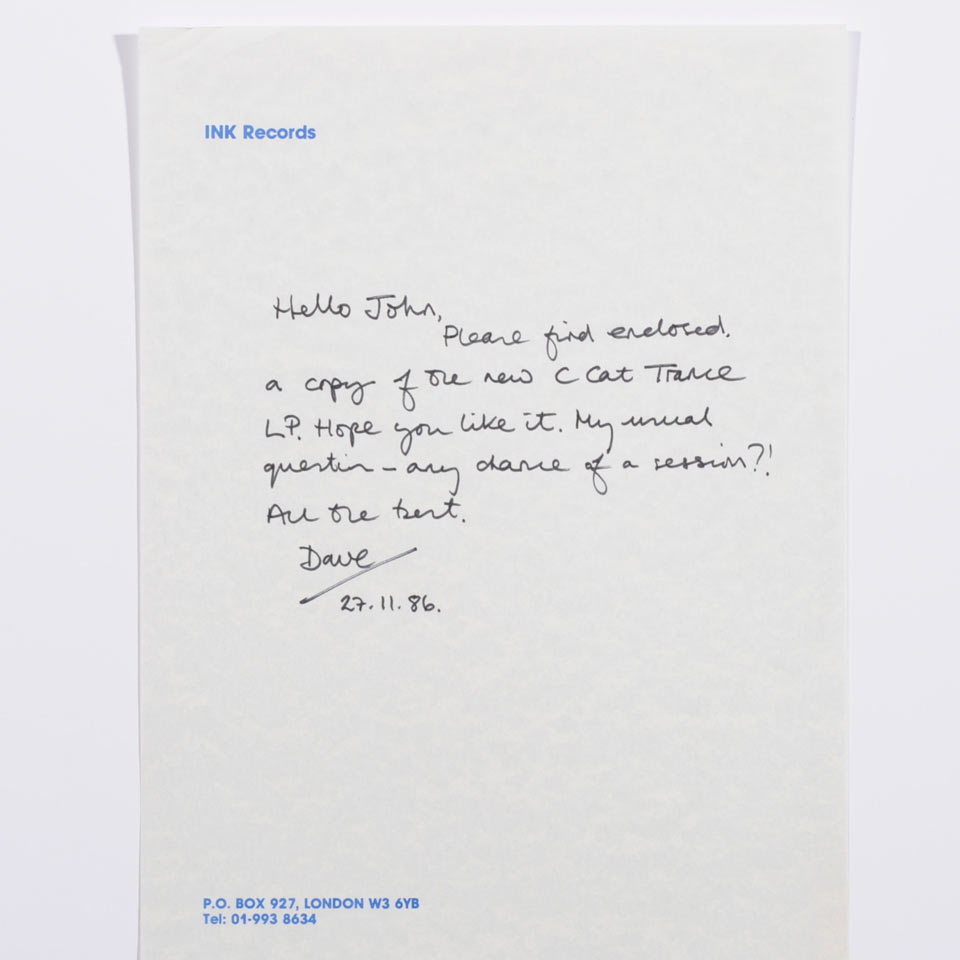 INK Records
Hello John,
Please find enclosed.
a copy of the new C Cat Trance
LP. Hope you like it. My usual
question – any chance of a session?!
All the best.
Dave
27.11.86.
P.O. BOX 927, LONDON W3 6YB
Tel: 01-993 8634